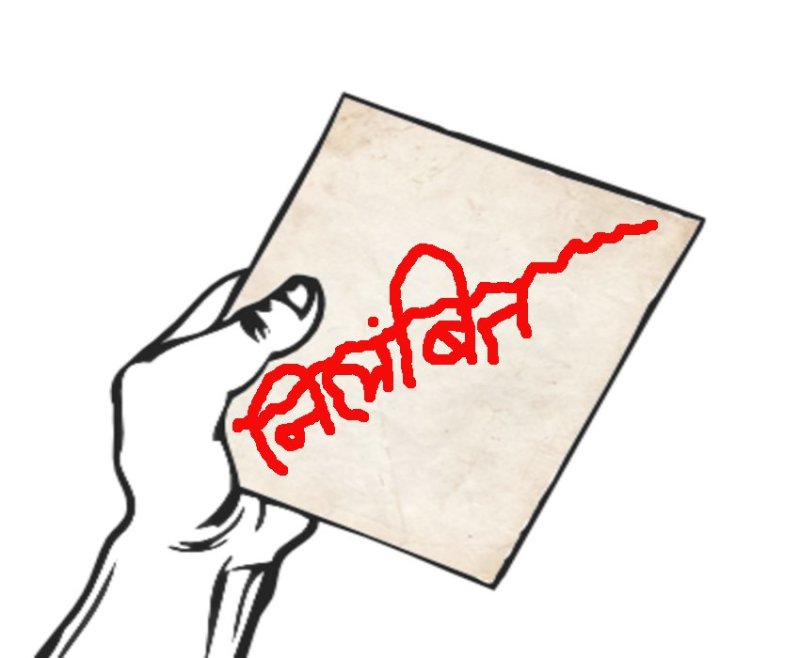 निलंबित